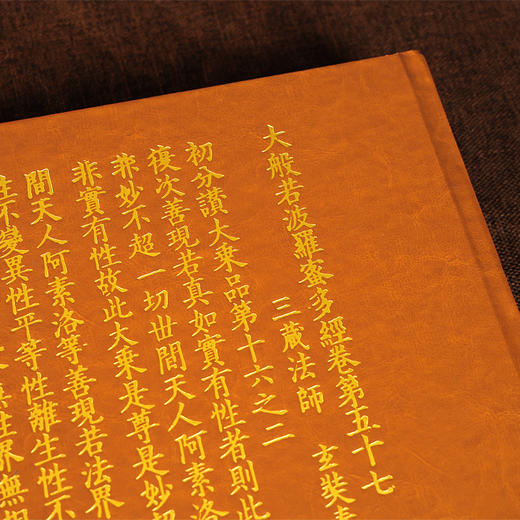 大般若波羅蜜多經卷第五十七
三藏法師 玄奘
初分讚大乘品第十六之二
復次善現若真如實有性者則此
非妙不超一切世間天人阿素洛
非實有性故此大乘是尊是妙超
間天人阿素洛等善現若法界
性不變異性平等性離生性不
性界無